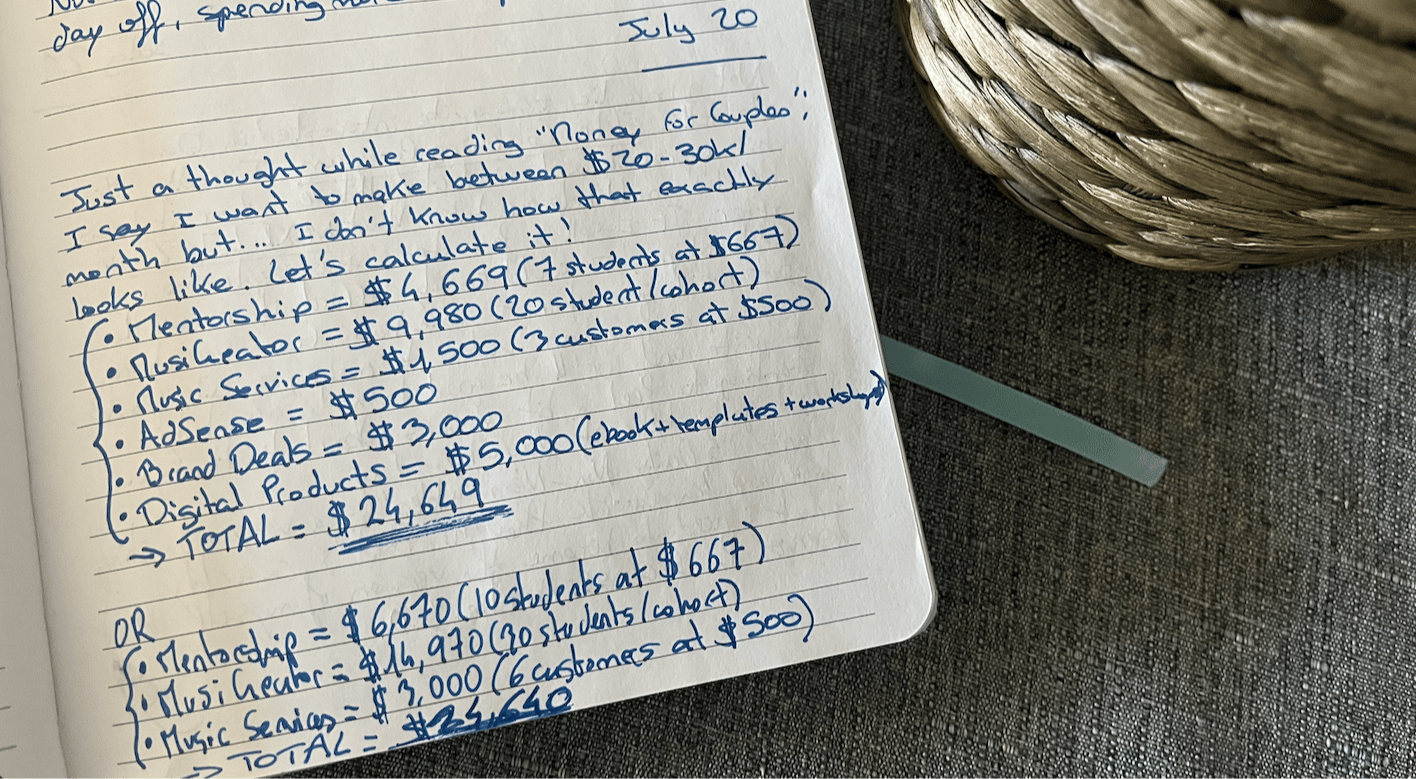 day off, spending
July 20
Just a thought while reading "Money for Couples":
I say I want to make between $20-30k/
month but... I don't know how that exactly
looks like. Let's calculate it!
• Mentorship = $4,669 (7 students at $667)
• MusiCreator = $9,980 (20 student/cohort)
• Music Services = $1500 (3 customers at $500)
• AdSense = $500
• Brand Deals = $3,000
• Digital Products = $5,000 (ebook + templates + workshops)
→ TOTAL = $24,649
OR
• Mentorship = $6,670 (10 students at $667)
• MusiCreator = $14,970 (30 students/cohort)
• Music Services = $3,000 (6 customers at $500)
→ TOTAL = $24,640